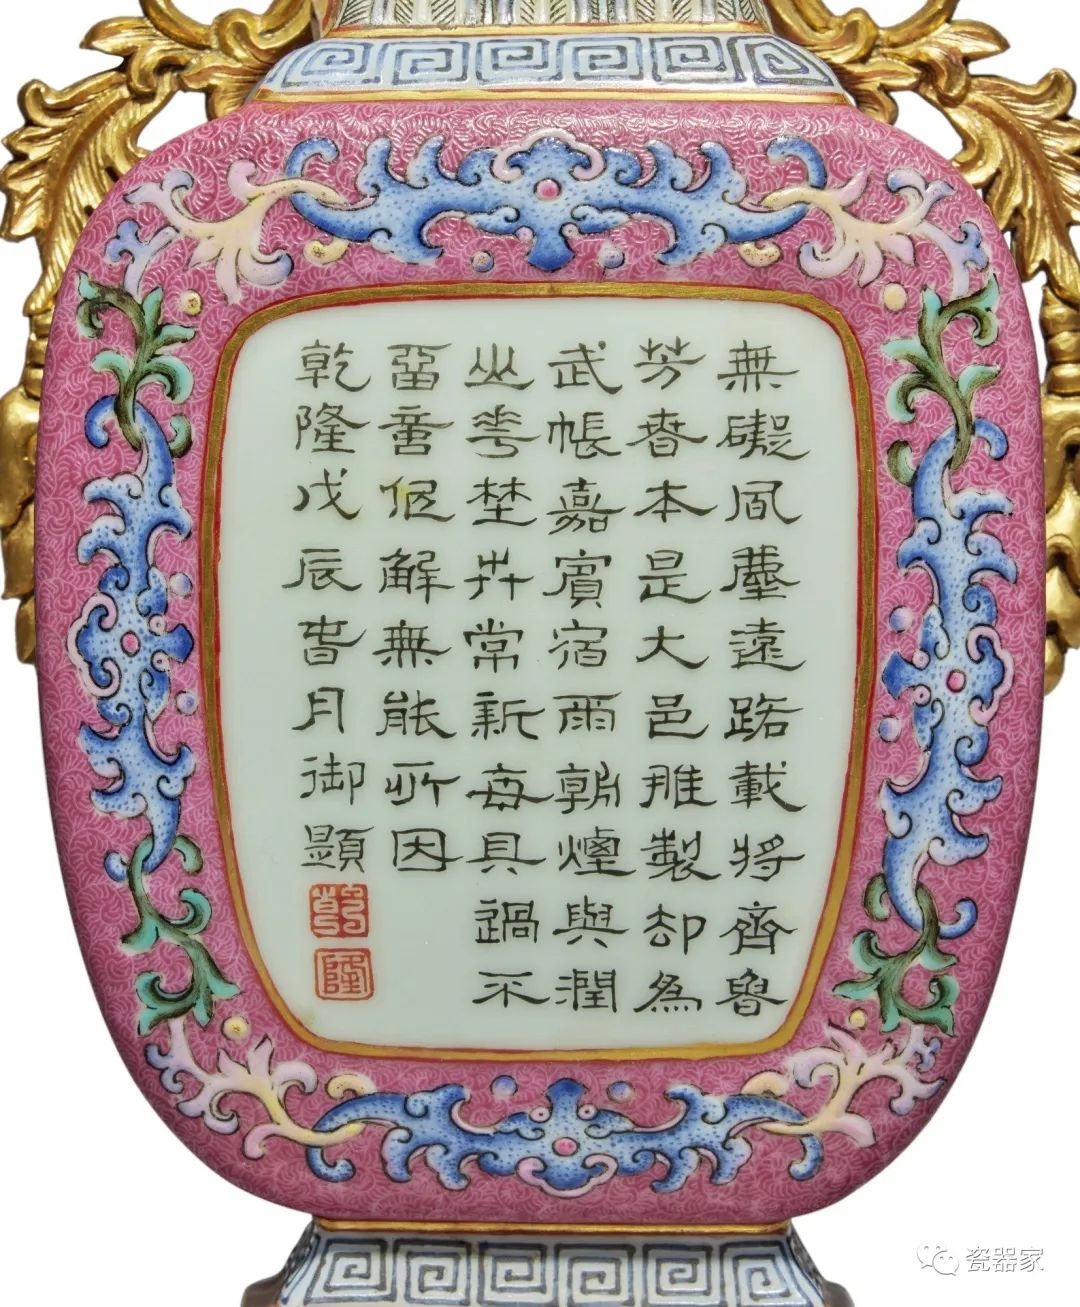 無礙風塵遠路載將齊魯
芳春本是大邑雅製却為
武帳嘉賓宿雨朝煙與潤
山花埜卉常新每具過不
畱意但解無能所因
乾隆戊辰春月御題
乾
隆
瓷器家